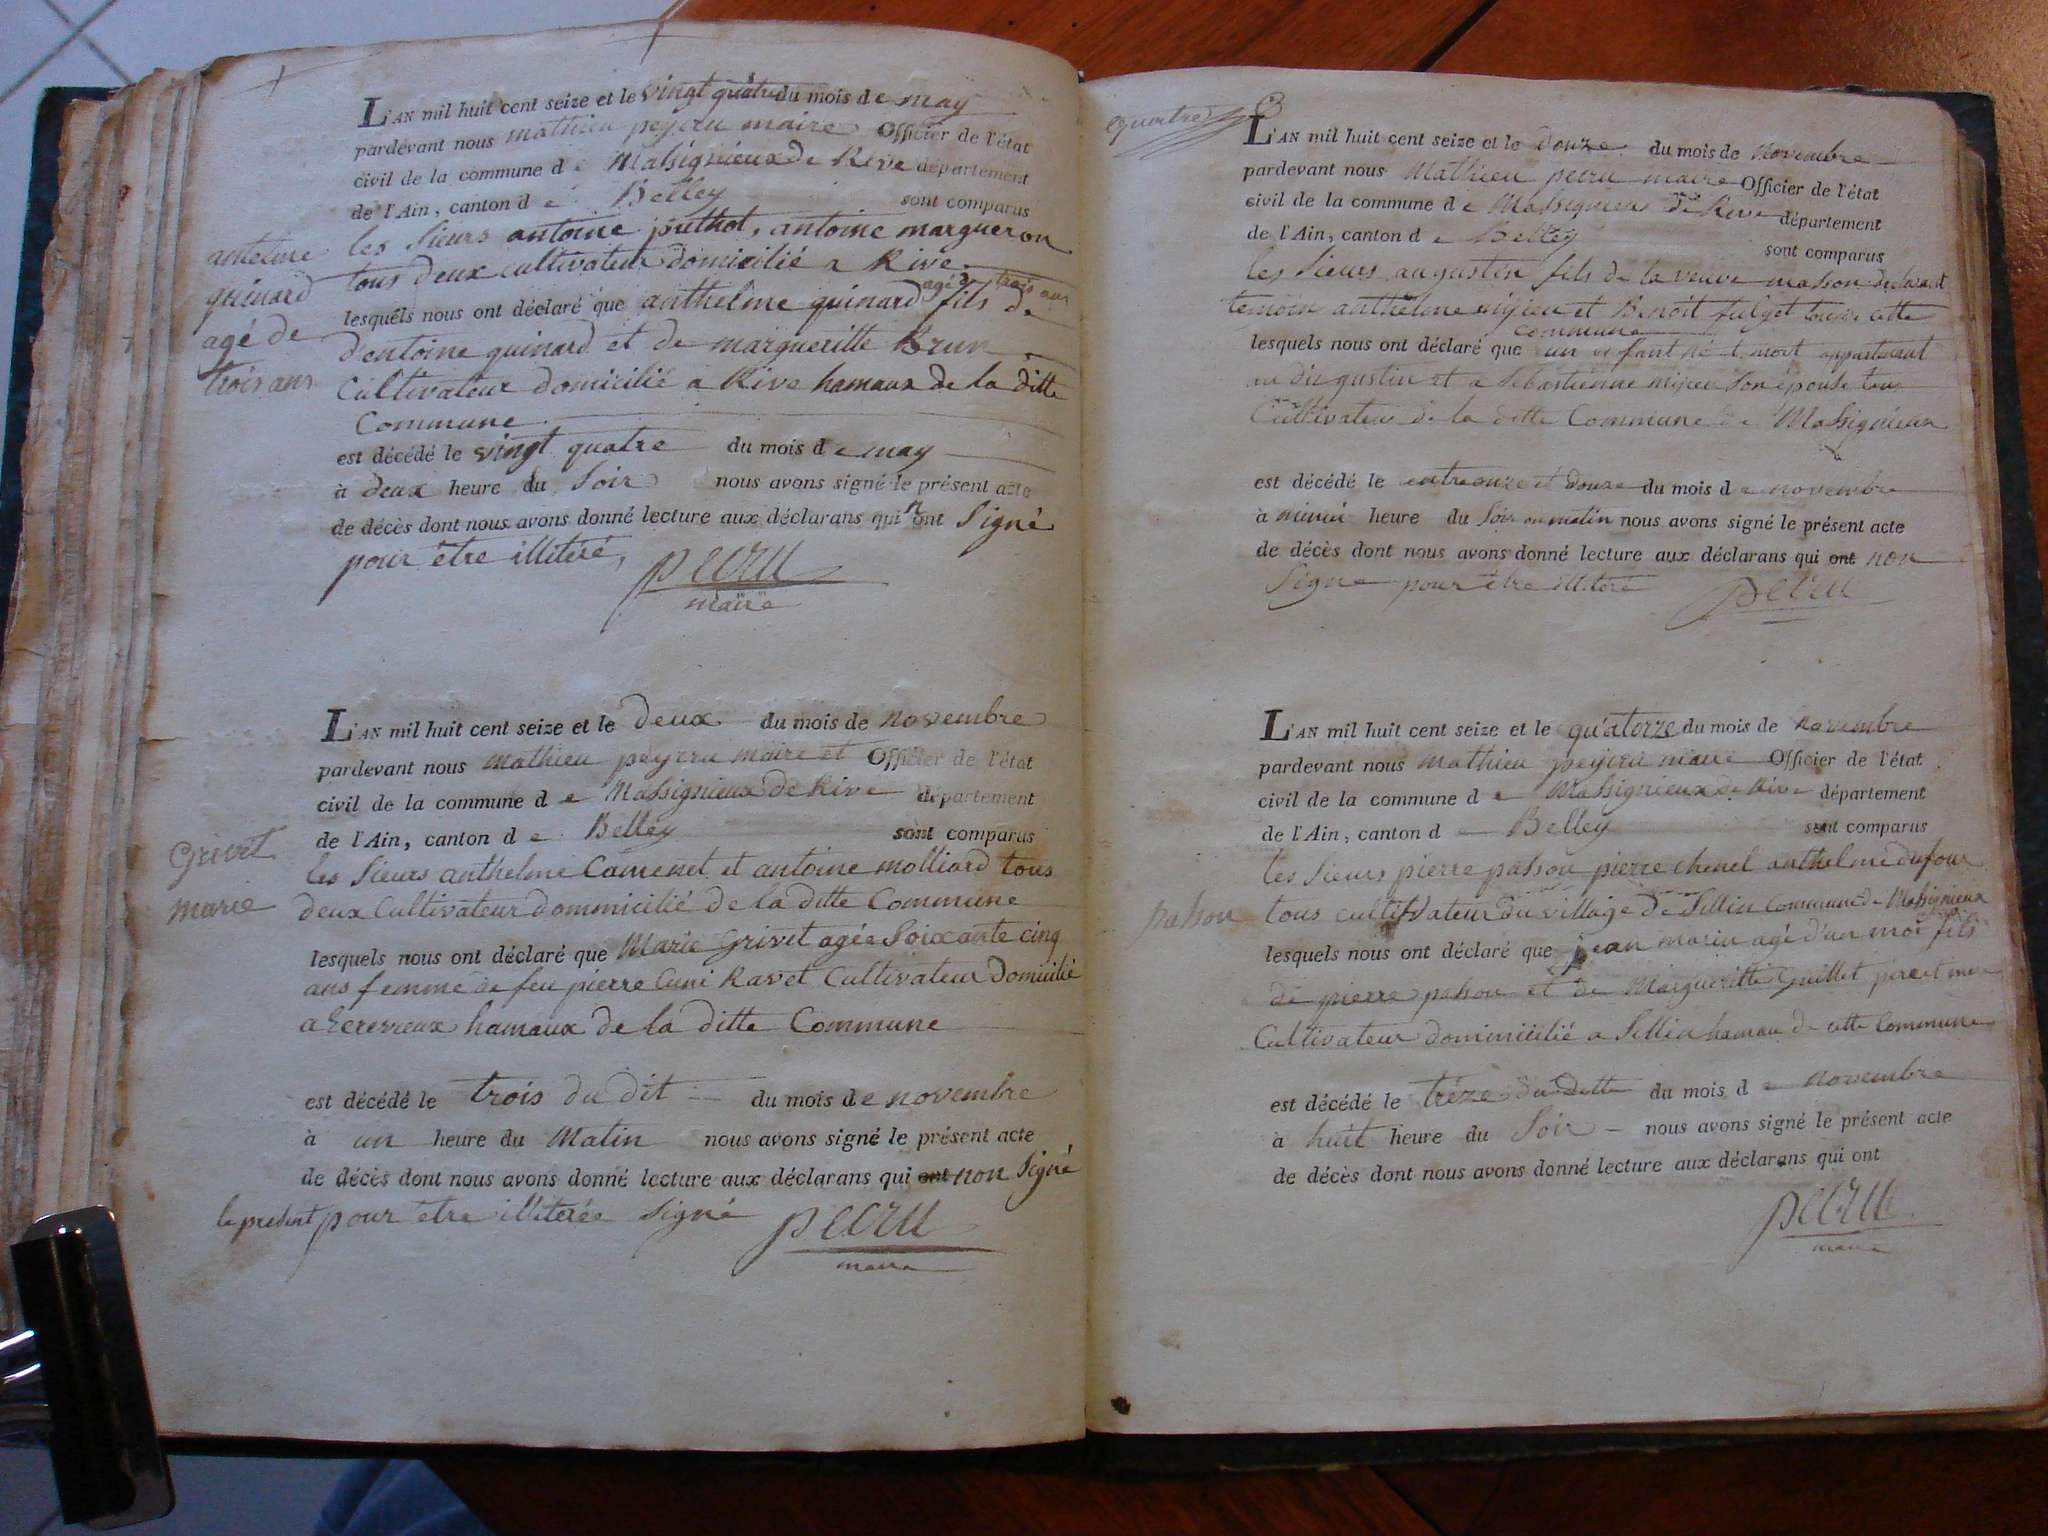 L'AN mil huit cent seize et le vingt quatre du mois de may
pardevant nous mathieu peyzru maire Officier de l'état
civil de la commune de Massignieux de Rive département
de l'Ain, canton de Belley sont comparus
les sieurs antoine puthod, antoine margueron
tous deux cultivateur domicilié a Rive
agé de trois ans
lesquels nous ont déclaré que anthelme guinard fils de
d'entoine guinard et de margueritte Brun
Cultivateur domicilié a Rive hamaux de la ditte
Commune
est décédé le vingt quatre du mois de may
à deux heure du Soir nous avons signé le présent acte
de décès dont nous avons donné lecture aux déclarans qui n'ont Signé
pour être illiteré,
pecru
maire
antelme
guinard
agé de
trois ans
L'AN mil huit cent seize et le deux du mois de novembre
pardevant nous mathieu peyzru maire et Officier de l'état
civil de la commune de Massignieux de Rive département
de l'Ain, canton de Belley sont comparus
les Sieurs anthelme Camenet et antoine molliard tous
deux Cultivateur dommicilié de la ditte Commune
lesquels nous ont déclaré que Marie Grivet agée Soixante cinq
ans femme de feu pierre Cuni Ravet Cultivateur Domicilié
a hamaux de la ditte Commune
est décédé le trois du dit du mois de novembre
à un heure du Matin nous avons signé le présent acte
de décès dont nous avons donné lecture aux déclarans qui ont non Signé
le présent pour être illiterée Signé pecru
maire
Grivet
marie
L'AN mil huit cent seize et le douze du mois de novembre
pardevant nous Mathieu pecru maire Officier de l'état
civil de la commune de Massignieux de Rive département
de l'Ain, canton de Belley sont comparus
les Sieurs augustin fils de la veuve masson
temoin anthelme mijeu et Benoit fulget tous de cette
commune
lesquels nous ont déclaré que un enfant né mort appartenant
augustin et a Sébastienne mijeu Son épouse tous
Cultivateur de la ditte Commune de Massignieux
est décédé le entre onze et douze du mois de novembre
à minui heure du Soir ou matin nous avons signé le présent acte
de décès dont nous avons donné lecture aux déclarans qui ont non
Signé pour être illiteré pecru
L'AN mil huit cent seize et le quatorze du mois de novembre
pardevant nous mathieu peyzru maire Officier de l'état
civil de la commune de Massignieux de Rive département
de l'Ain, canton de Belley sont comparus
les Sieurs pierre pahou pierre chenel anthelme dufour
tous cultivateur du village de Sillin commune de Massignieux
lesquels nous ont déclaré que jean marin agé d'un moi fils
de pierre pahou et de Margueritte Guillet père et mere
Cultivateur dominicilié a Sillin hamau de cette Commune
est décédé le tréze du ditte du mois de novembre
à huit heure du Soir nous avons signé le présent acte
de décès dont nous avons donné lecture aux déclarans qui ont
pecru
maire
pahou